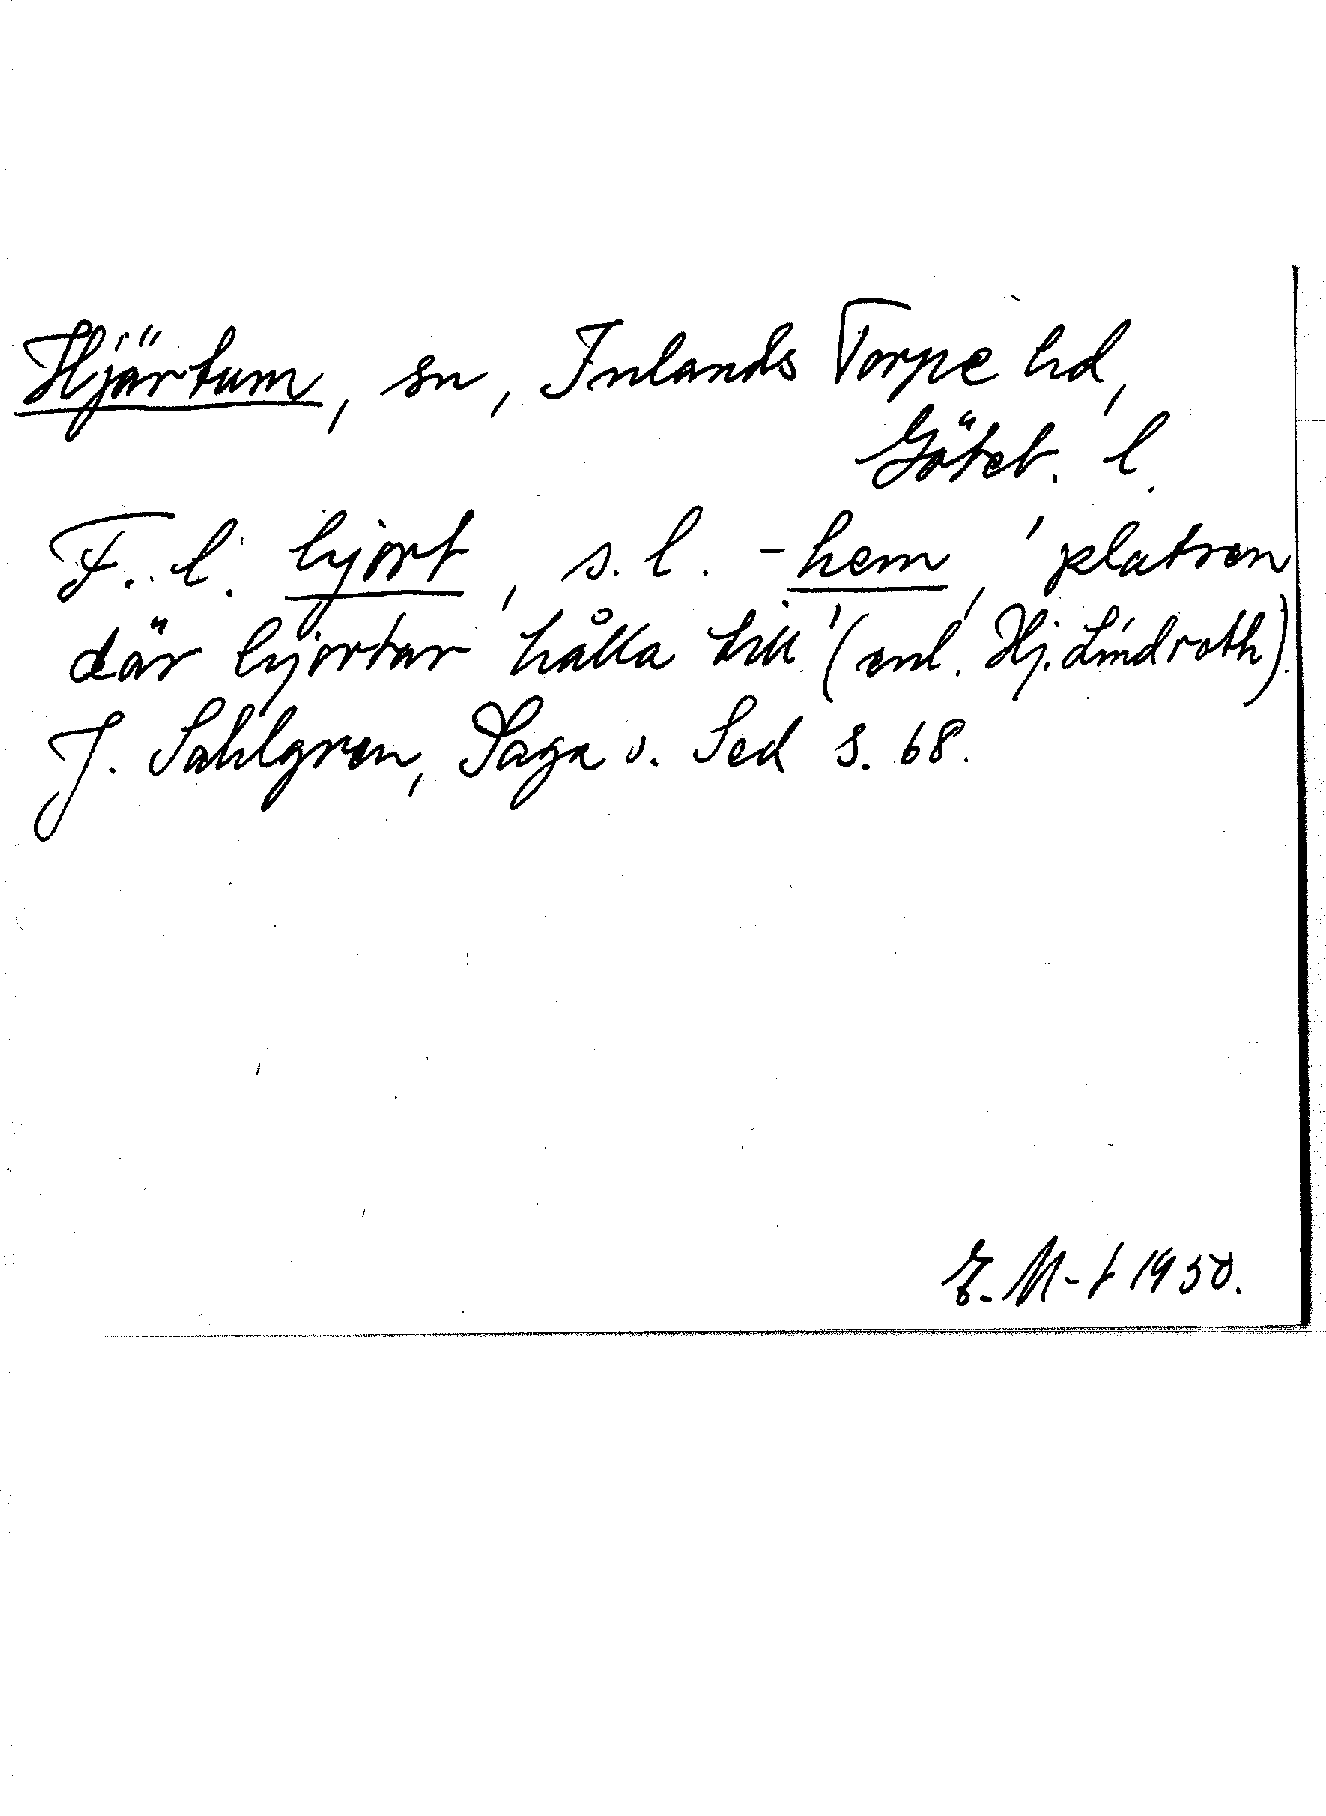 Hjärtum, sn, Inlands Torpe hd,
Göteb. l.
F. l. hjort, s. l. -hem, 'platsen
där hjortar hålla till' (enl. Hj. Lindroth).
J. Sahlgren, Saga o. Sed s. 68.
E. M-t 1950.